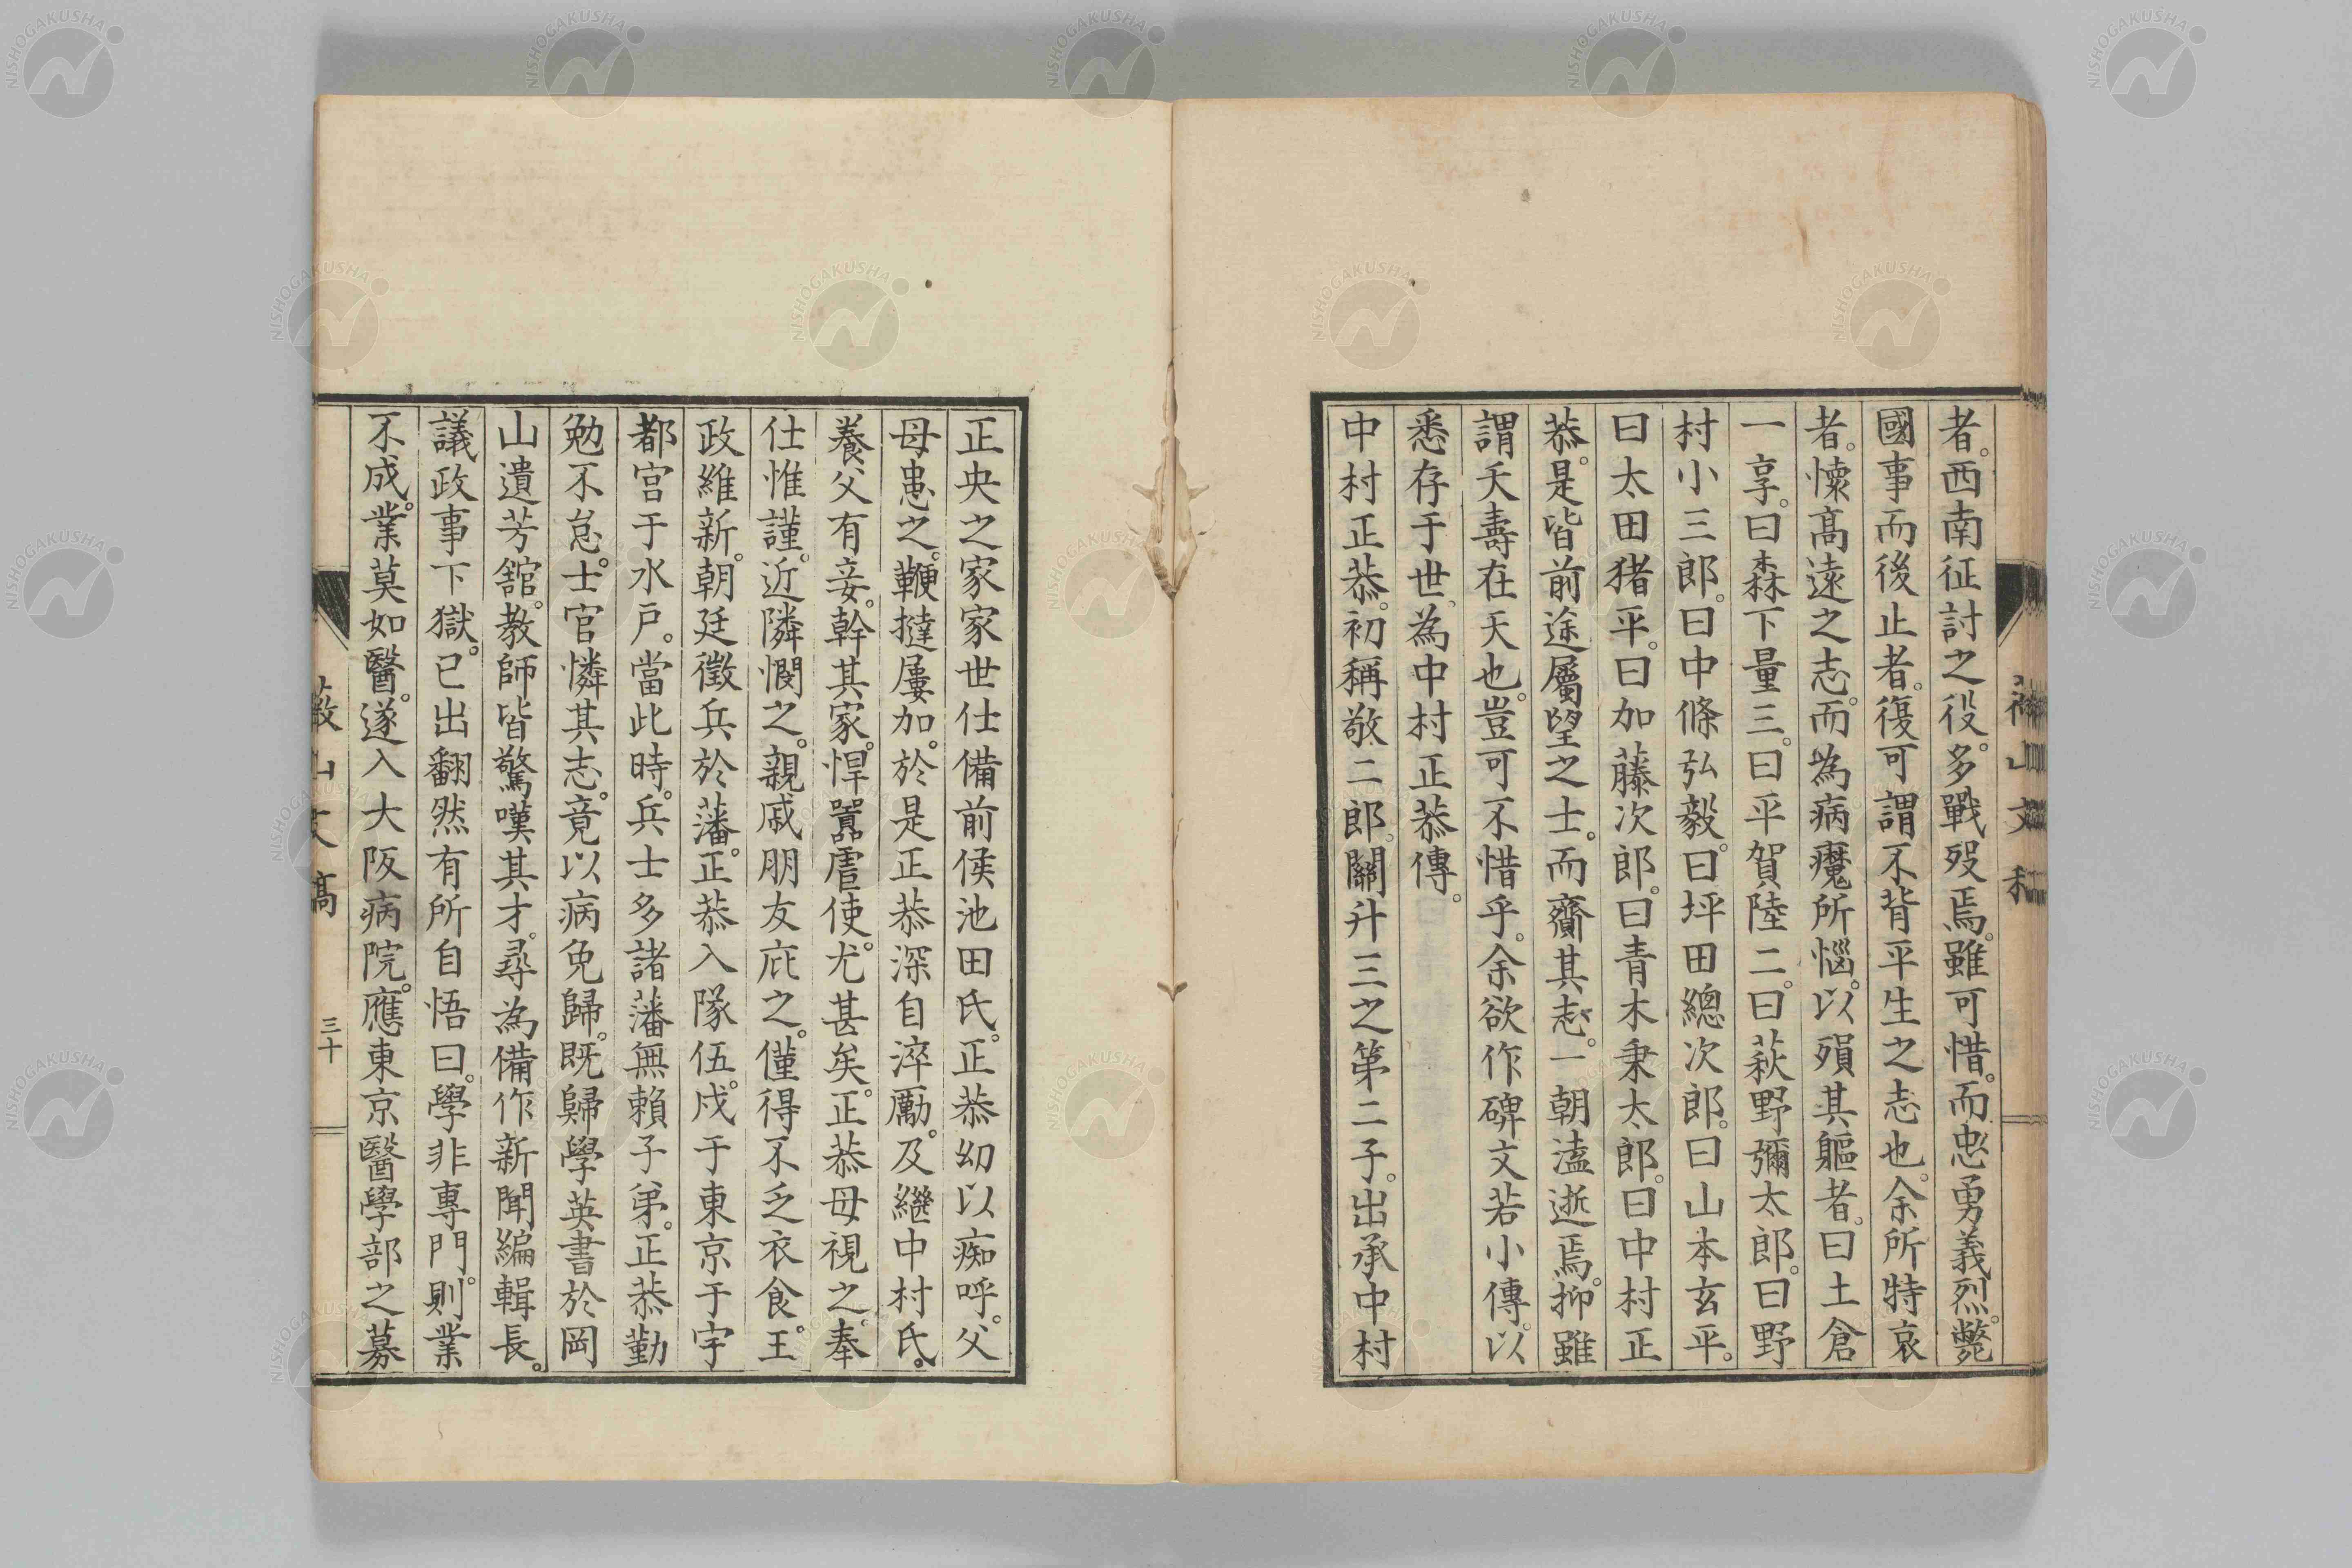 者。西南征討之役。多戰歿焉。雖可惜。而忠勇義烈。斃
國事而後止者。復可謂不背平生之志也。余所特哀
者。懷高遠之志。而為病魔所惱。以殞其軀者。曰土倉
一享。曰森下量三。曰平賀陸二。曰萩野彌太郎。曰野
村小三郎。曰中條弘毅。曰坪田總次郎。曰山本玄平。
曰太田猪平。曰加藤次郎。曰青木秉太郎。曰中村正
恭。是皆前途屬望之士。而齎其志。一朝溘逝焉。抑雖
謂夭壽在天也。豈可不惜乎。余欲作碑文若小傳。以
悉存于世、為中村正恭傳。
中村正恭。初稱敬二郎。關升三之第二子。出承中村
正央之家家世仕備前侯池田氏。正恭幼以痴呼。父
母患之。鞭撻屢加。於是正恭深自淬勵。及繼中村氏。
養父有妾。幹其家。悍嚚虐使。尤甚矣。正恭母視之。奉
仕惟謹。近隣憫之。親戚朋友庇之。僅得不乏衣食。王
政維新。朝廷徵兵於藩。正恭入隊伍。戍于東京于宇
都宮于水戶。當此時。兵士多諸藩無賴子弟。正恭勤
勉不怠。士官憐其志。竟以病免歸。既歸學英書於岡
山遺芳館。教師皆驚嘆其才。尋為備作新聞編輯長。
議政事下獄。已出翻然有所自悟曰。學非專門。則業
不成。業莫如醫。遂入大阪病院。應東京醫學部之募
薇山文稿
三十
NISHOGAKUSHA